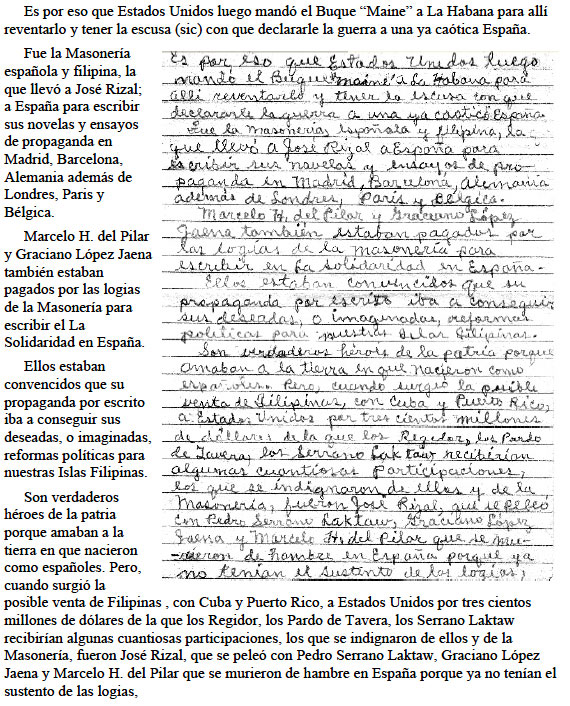 Es por eso que Estados Unidos luego mandó el Buque “Maine” a La Habana para allí
reventarlo y tener la escusa (sic) con que declararle la guerra a una ya caótica España.
Fue la Masonería
española y filipina, la
que llevó a José Rizal;
a España para escribir
sus novelas y ensayos
de propaganda en
Madrid, Barcelona,
Alemania además de
Londres, Paris y
Bélgica.
Marcelo H. del Pilar
y Graciano López Jaena
también estaban
pagados por las logias
de la Masonería para
escribir el La
Solidaridad en España.
Ellos estaban
convencidos que su
propaganda por escrito
iba a conseguir sus
deseadas, o imaginadas,
reformas políticas para
nuestras Islas Filipinas.
Son verdaderos
héroes de la patria
porque amaban a la
tierra en que nacieron
como españoles. Pero,
cuando surgió la
posible venta de Filipinas , con Cuba y Puerto Rico, a Estados Unidos por tres cientos
millones de dólares de la que los Regidor, los Pardo de Tavera, los Serrano Laktaw
recibirían algunas cuantiosas participaciones, los que se indignaron de ellos y de la
Masonería, fueron José Rizal, que se peleó con Pedro Serrano Laktaw, Graciano López
Jaena y Marcelo H. del Pilar que se murieron de hambre en España porque ya no tenían el
sustento de las logias,
Es por eso que Estados Unidos luego
mandó el Buque "Maine" a La Habana para
allí reventarlo y tener la escusa con que
declararle la guerra a una ya caótica España.
Fue la Masonería, española y filipina, la
que llevó a José Rizal a España para
escribir sus novelas y ensayos de pro-
paganda en Madrid, Barcelona, Alemania
además de Londres, París y Bélgica.
Marcelo H. del Pilar y Graciano López
Jaena también estaban pagados por
las logias de la masonería para
escribir en La Solidaridad en España.
Ellos estaban convencidos que su
propaganda por escrito iba a conseguir
sus deseadas, o imaginadas, reformas
políticas para nuestras Islas Filipinas.
Son verdaderos héroes de la patria porque
amaban a la tierra en que nacieron como
españoles. Pero, cuando surgió la posible
venta de Filipinas, con Cuba y Puerto Rico,
a Estados Unidos por tres cientos millones
de dóllares de la que los Regidor, los Pardo
de Tavera, los Serrano Laktaw recibirían
algunas cuantiosas participaciones,
los que se indignaron de ellos y de la
Masonería, fueron José Rizal, que se peleó
con Pedro Serrano Laktaw, Graciano López
Jaena y Marcelo H. del Pilar que se mu-
rieron de hambre en España porque ya
no tenían el sustento de las logias,